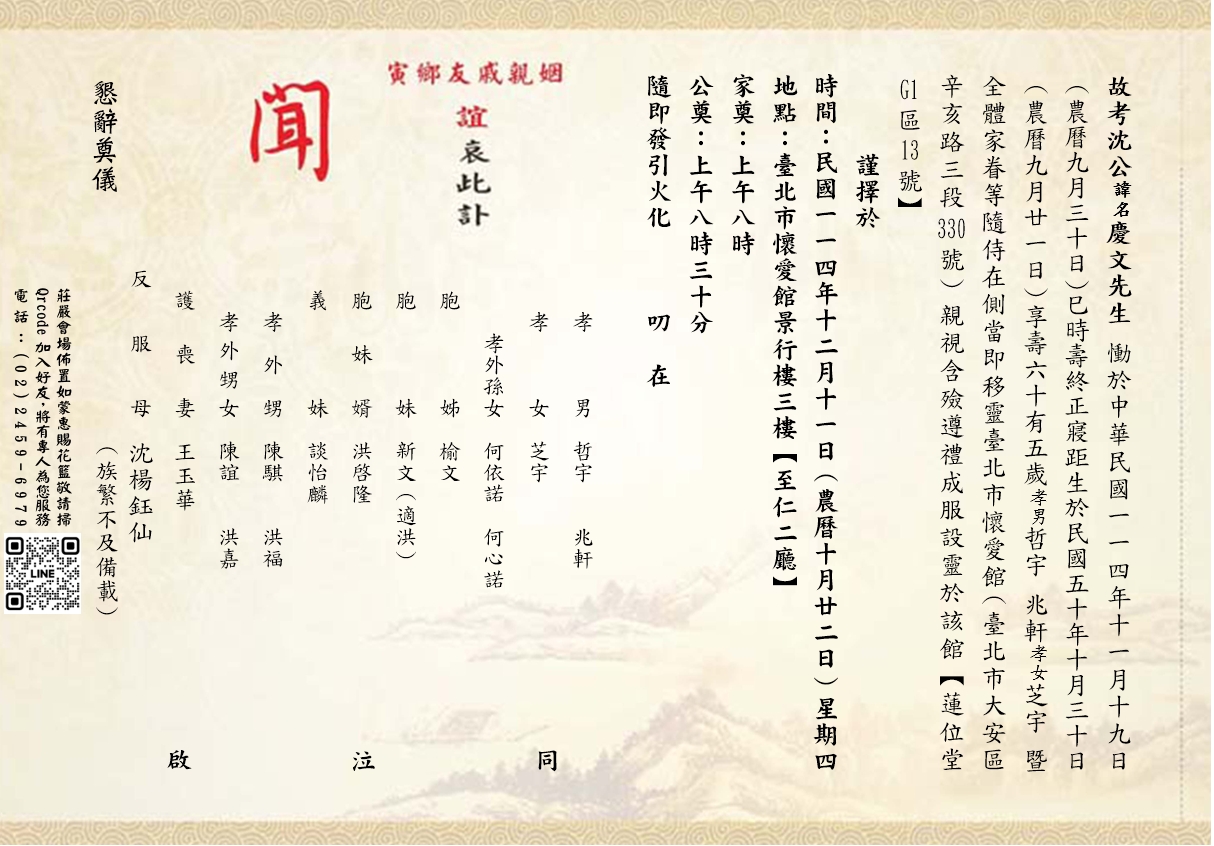 故考沈公諱名慶文先生 慟於中華民國一一四年十一月十九日
(農曆九月三十日)巳時壽終正寢距生於民國五十年十月三十日
(農曆九月廿一日)享壽六十有五歲孝男哲宇 兆軒孝女芝宇 暨
全體家眷等隨侍在側當即移靈臺北市懷愛館(臺北市大安區
辛亥路三段330號)親視含殮遵禮成服設靈於該館【蓮位堂
G1區13號】
謹擇於
時間:民國一一四年十二月十一日(農曆十月廿二日)星期四
地點:臺北市懷愛館景行樓三樓【至仁二廳】
家奠:上午八時
公奠:上午八時三十分
隨即發引火化 叨 在
寅鄉友戚親姻
誼
哀此訃
聞
孝男 哲宇 兆軒
孝女 芝宇
孝外孫女 何依諾 何心諾
胞姊 榆文
胞妹 新文(適洪)
胞妹婿 洪啓隆
義妹 談怡麟
孝外甥 陳騏 洪福
孝外甥女 陳誼 洪嘉
護喪妻 王玉華
反服母 沈楊鈺仙
(族繁不及備載)
同 泣 啟
懇辭奠儀
莊嚴會場佈置如蒙惠賜花籃敬請掃
Qrcode加入好友,將有專人為您服務
電話:(02)2459-6979
LINE